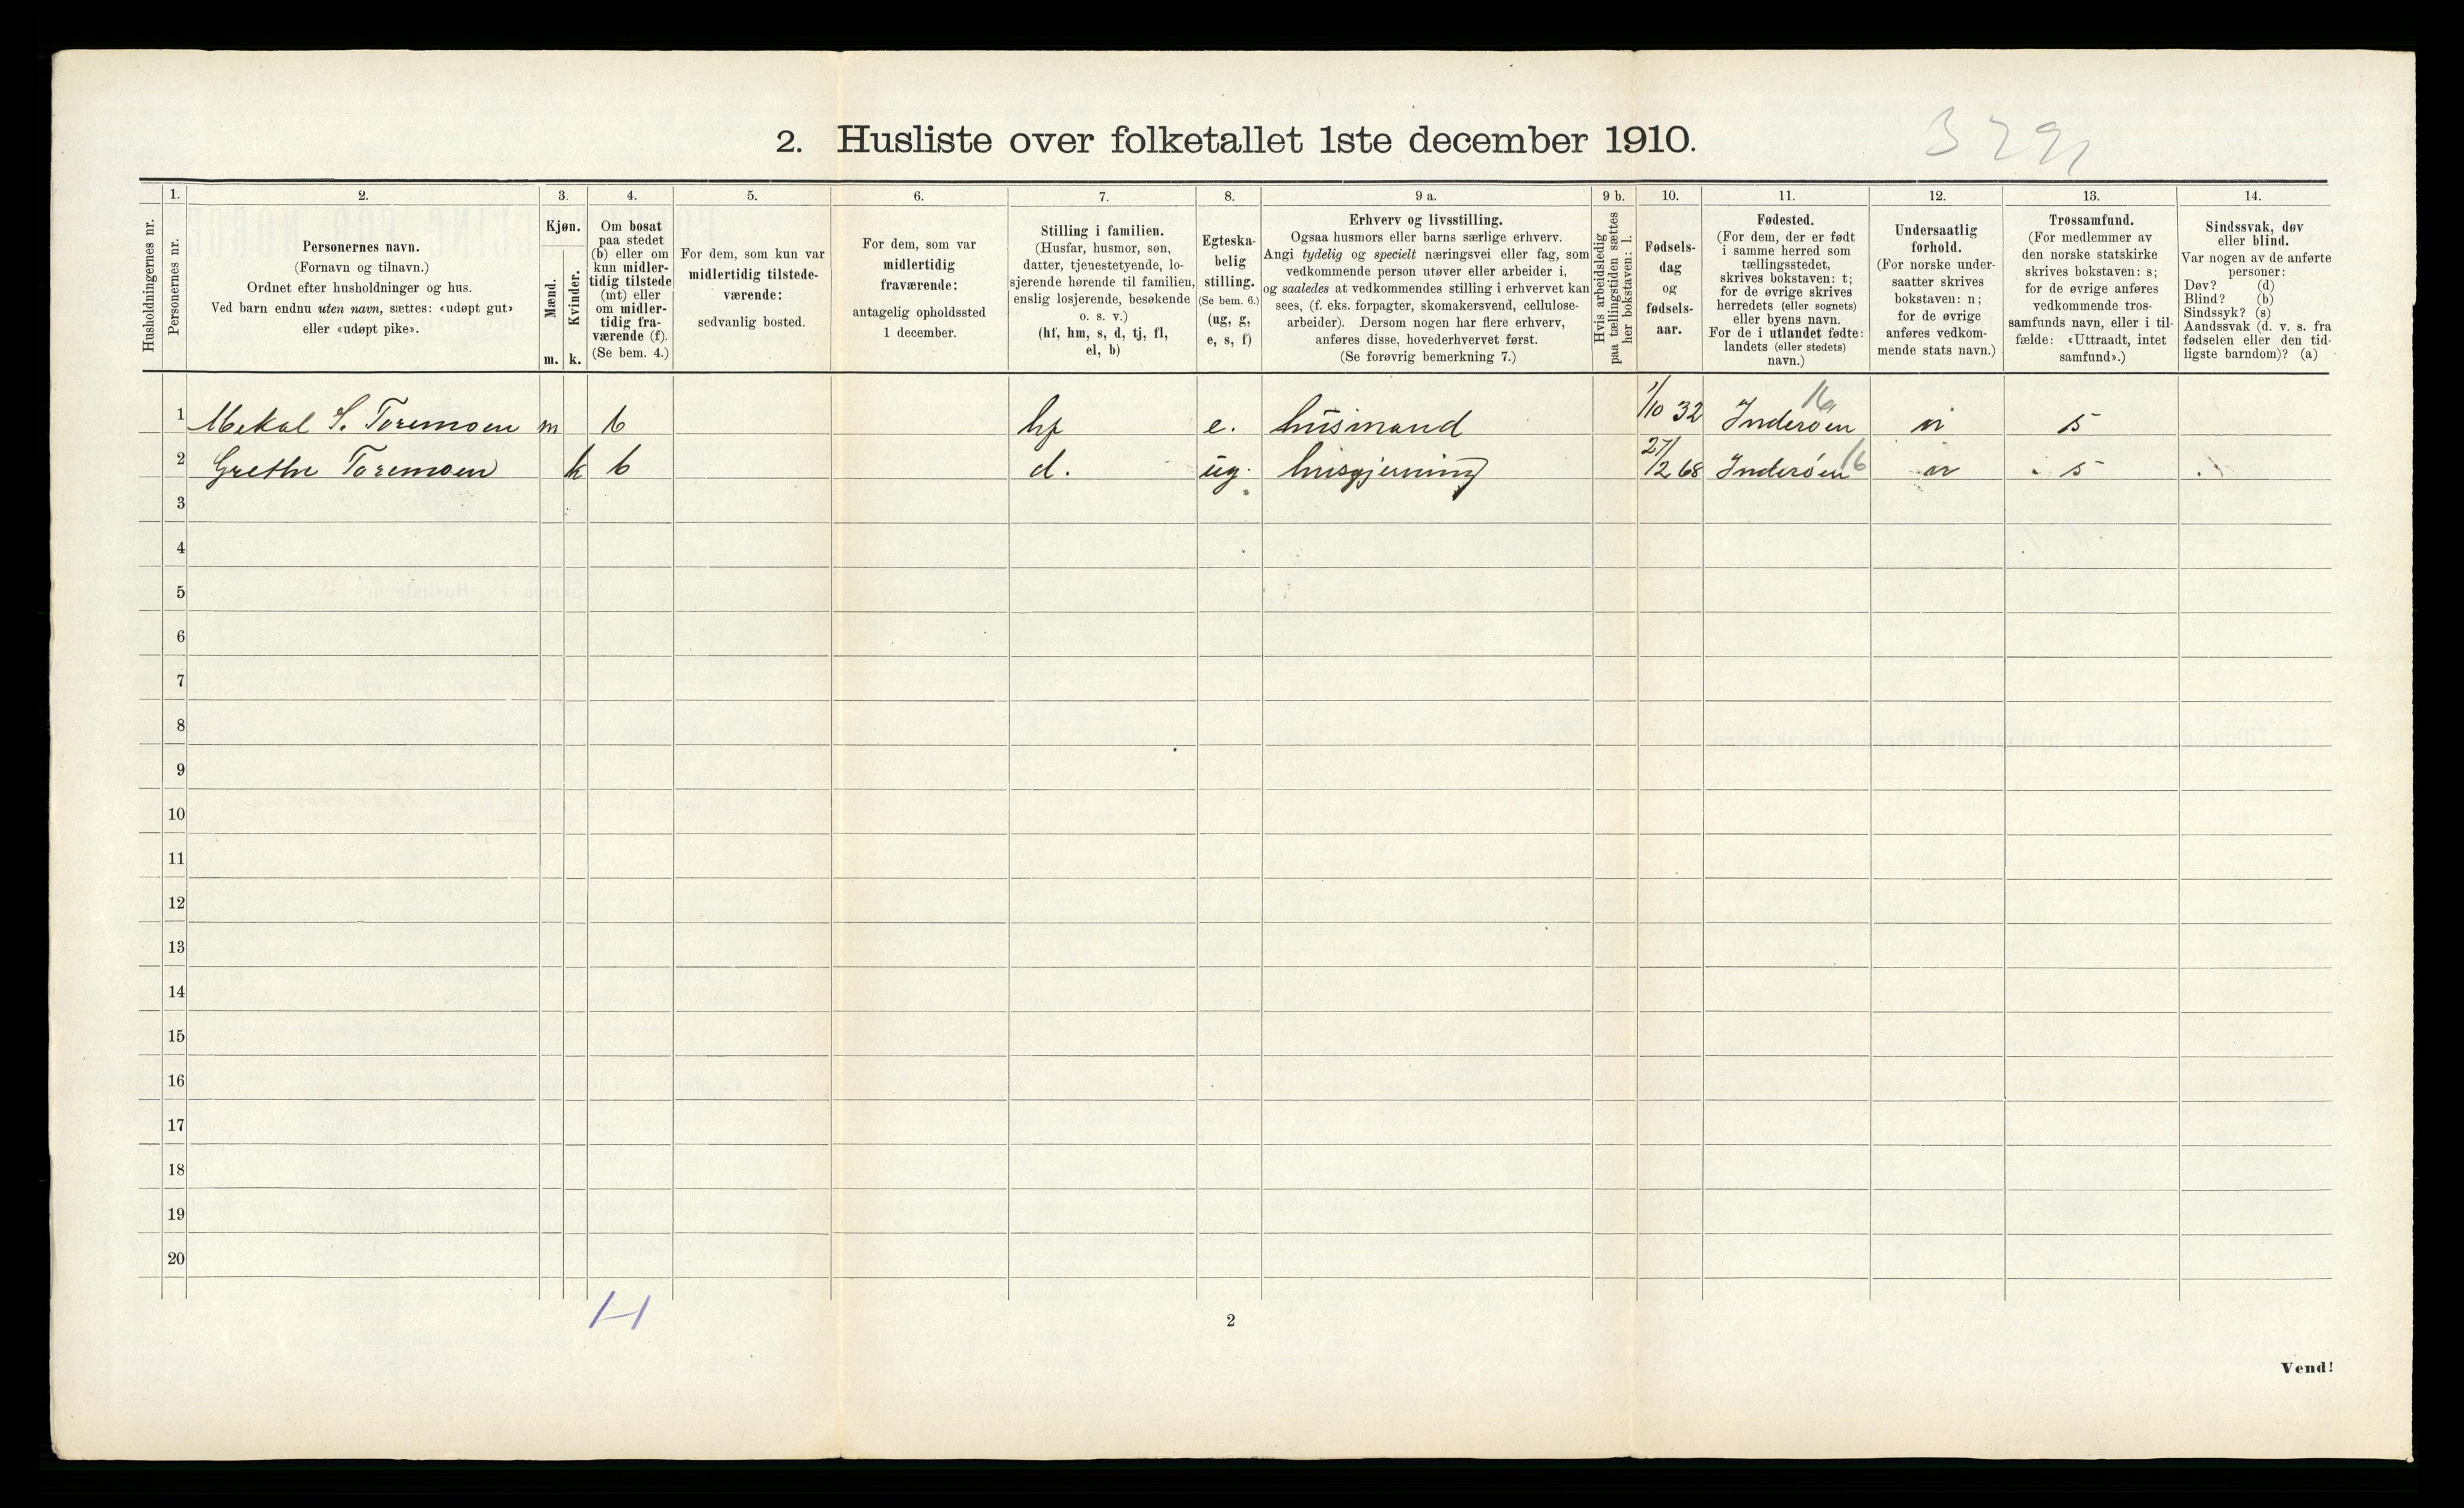 2. Husliste over folketallet 1ste december 1910.
329
1. 2. 3. 4. 5. 6. 7. 8. 9 a. 9 b. 10. 11. 12. 13. 14.
Husholdningernes nr.
Personernes nr.
Personernes navn.
(Fornavn og tilnavn.)
Ordnet efter husholdninger og hus.
Ved barn endnu uten navn, sættes: «udøpt gut»
eller «udøpt pike».
Kjøn.
Mænd.
m.
Kvinder.
k.
Om bosat
paa stedet
(b) eller om
kun midler-
tidig tilstede
(mt) eller
om midler-
tidig fra-
værende (f).
(Se bem. 4.)
For dem, som kun var
midlertidig tilstede-
værende:
sedvanlig bosted.
For dem, som var
midlertidig
fraværende:
antagelig opholdssted
1 december.
Stilling i familien.
(Husfar, husmor, søn,
datter, tjenestetyende, lo-
sjerende hørende til familien,
enslig losjerende, besøkende
o. s. v.)
(hf, hm, s, d, tj, fl,
el, b)
Egteska-
belig
stilling.
(Se bem. 6.)
(ug, g,
e, s, f)
Erhverv og livsstilling.
Ogsaa husmors eller barns særlige erhverv.
Angi tydelig og specielt næringsvei eller fag, som
vedkommende person utøver eller arbeider i,
og saaledes at vedkommendes stilling i erhvervet kan
sees, (f. eks. forpagter, skomakersvend, cellulose-
arbeider). Dersom nogen har flere erhverv,
anføres disse, hovederhvervet først.
(Se forøvrig bemerkning 7.)
Hvis arbeidsledig
paa tællingstiden sættes
her bokstaven: l.
Fødsels-
dag
og
fødsels-
aar.
Fødested.
(For dem, der er født
i samme herred som
tællingsstedet,
skrives bokstaven: t;
for de øvrige skrives
herredets (eller sognets)
eller byens navn.
For de i utlandet fødte:
landets (eller stedets)
navn.)
Undersaatlig
forhold.
(For norske under-
saatter skrives
bokstaven: n;
for de øvrige
anføres vedkom-
mende stats navn.)
Trossamfund.
(For medlemmer av
den norske statskirke
skrives bokstaven: s;
for de øvrige anføres
vedkommende tros-
samfunds navn, eller i til-
fælde: «Uttraadt, intet
samfund».)
Sindssvak, døv
eller blind.
Var nogen av de anførte
personer:
Døv? (d)
Blind? (b)
Sindssyk? (s)
Aandssvak (d. v. s. fra
fødselen eller den tid-
ligste barndom)? (a)
1 Mekal S. Toremoen m b hf e. husmand 1/10 32 Inderøen 16 n s
2 Grethe Toremoen k b d. ug. husgjerning 27/2 68 Inderøen 16 n s
3
4
5
6
7
8
9
10
11
12
13
14
15
16
17
18
19
20
2
Vend!